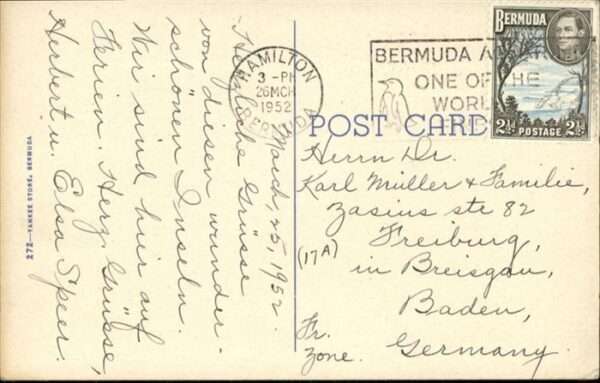 March, 25, 1952.
Herzliche Grüsse
von diesen wunder-
schönen Inseln.
Wir sind hier auf
Ferien. Herz. Grüsse,
Herbert u. Elsa Speer.
272—YANKEE STORE, BERMUDA
HAMILTON
3 - PM
26 MCH
1952
BERMUDA
BERMUDA
ONE OF THE
WORL
BERMUDA
2½ POSTAGE 2½
POST CARD
Herrn Dr.
Karl Müller & Familie,
Zasius ste 82
(17A) Freiburg,
in Breisgau,
Baden,
Fr.
Zone. Germany.